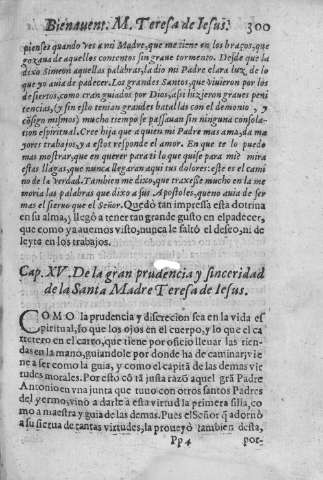 Bienauent. M. Teresa de Iesus. 300
pienses quando ves a mi Madre, que me tiene en los braços, que
gozaua de aquellos contentos sin graue tormento. Desde que la
dixo Simeon aquellas palabras, la dio mi Padre clara luz, de lo
que yo auia de padecer. Los grandes Santos, que viuieron por los
desiertos, como eran guiados por Dios, assi hizieron graues peni
tencias, (y sin esto tenian grandes batallas con el demonio, y
cōsigo mismos) mucho tiempo se passauan sin ninguna consola-
cion espiritual. Cree hija que a quien mi Padre mas ama, da ma
yores trabajos, y a estos responde el amor. En que te lo puedo
mas mostrar, que en querer para ti lo que quise para mi? mira
estas llagas, que nunca llegaran aqui tus dolores: este es el cami
no de la verdad. Tambien me dixo, que traxesse mucho en la me
moria las palabras que dixo a sus Apostoles, que no auia de ser
mas el sieruo que el Señor. Quedò tan impressa esta dotrina
en su alma, y llegò a tener tan grande gusto en el padecer,
que como ya auemos visto, nunca le faltò el desseo, ni de
leyte en los trabajos.
Cap. XV. De la gran prudencia y sinceridad
de la Santa Madre Teresa de Iesus.
COMO la prudencia y discrecion sea en la vida es
piritual, lo que los ojos en el cuerpo, y lo que el ca
rretero en el carro, que tiene por oficio lleuar las rien-
das en la mano, guiandole por donde ha de caminar; vie
ne a ser como la guia, y como el capitā de las demas vir
tudes morales. Por esto cō tā justa razō aquel grā Padre
Antonio en vna junta que tuuo con otros santos Padres
del yermo, vino a darle a esta virtud la primera silla, co
mo a maestra y guia de las demas. Pues el Señor q̄ adornò
a su sierua de tantas virtudes, la proueyò tambien desta,
Pp 4 por-